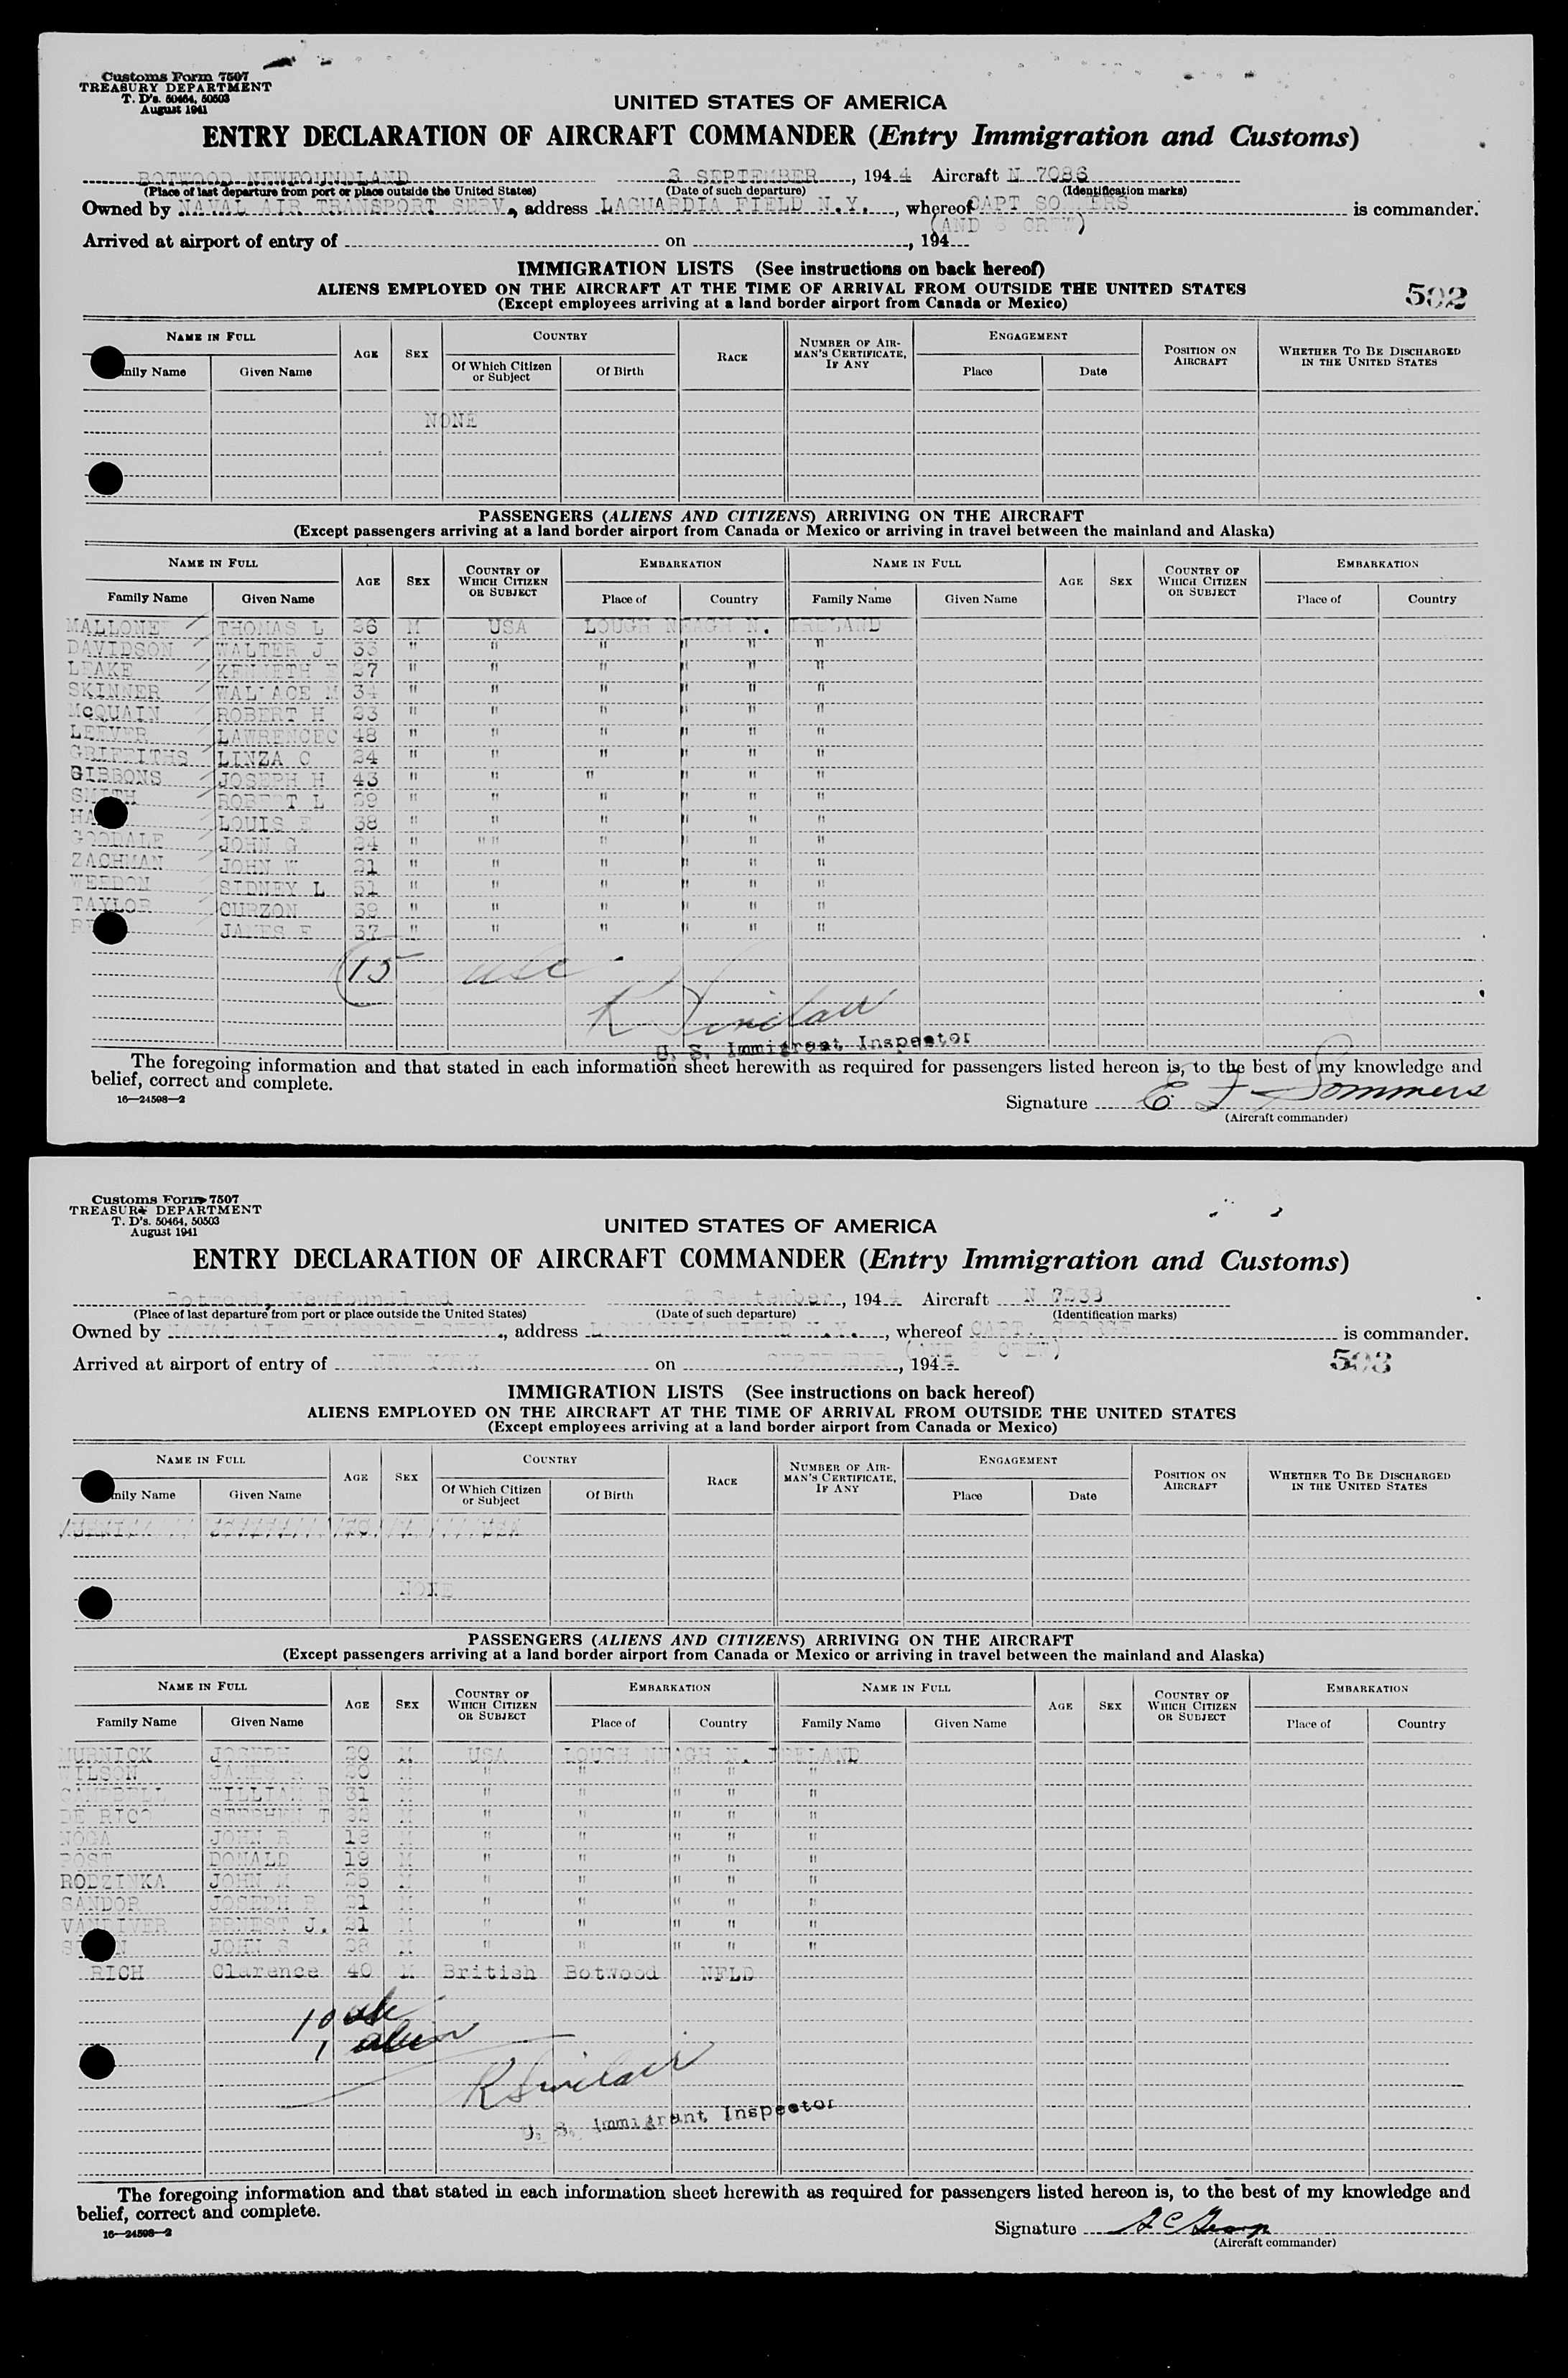 Customs Form 7507
TREASURY DEPARTMENT
T. D's. 50464, 50503
August 1941
UNITED STATES OF AMERICA
ENTRY DECLARATION OF AIRCRAFT COMMANDER (Entry Immigration and Customs)
BOTWOOD NEWFOUNDLAND 3 SEPTEMBER, 1944 Aircraft N 7086
(Place of last departure from port or place outside the United States) (Date of such departure) (Identification marks)
Owned by NAVAL AIR TRANSPORT SERV., address LAGUARDIA FIELD N.Y., whereof CAPT SOMMERS is commander.
(AND 8 CREW)
Arrived at airport of entry of on , 194
IMMIGRATION LISTS (See instructions on back hereof)
ALIENS EMPLOYED ON THE AIRCRAFT AT THE TIME OF ARRIVAL FROM OUTSIDE THE UNITED STATES
(Except employees arriving at a land border airport from Canada or Mexico)
502
NAME IN FULL AGE SEX COUNTRY RACE NUMBER OF AIRMAN'S CERTIFICATE, IF ANY ENGAGEMENT POSITION ON AIRCRAFT WHETHER TO BE DISCHARGED IN THE UNITED STATES
mily Name Given Name Of Which Citizen or Subject Of Birth Place Date
NONE
PASSENGERS (ALIENS AND CITIZENS) ARRIVING ON THE AIRCRAFT
(Except passengers arriving at a land border airport from Canada or Mexico or arriving in travel between the mainland and Alaska)
NAME IN FULL AGE SEX COUNTRY OF WHICH CITIZEN OR SUBJECT EMBARKATION NAME IN FULL AGE SEX COUNTRY OF WHICH CITIZEN OR SUBJECT EMBARKATION
Family Name Given Name Place of Country Family Name Given Name Place of Country
MALLONE THOMAS L 26 M USA LOUGH NEAGH N. IRELAND
DAVIDSON WALTER J 33 " " " " " "
LEAKE KENNETH 27 " " " " " "
SKINNER WALLACE M 34 " " " " " "
McQUAIN ROBERT H 23 " " " " " "
LEEVER LAWRENCEC 48 " " " " " "
GRIFFITHS LINZA C 24 " " " " " "
GIBBONS JOSEPH H 43 " " " " " "
SMITH ROBERT L " " " " " "
HA LOUIS E 38 " " " " " "
GOODALE JOHN G 24 " "" " " " "
ZACHMAN JOHN W 21 " " " " " "
WEEDON SIDNEY L 51 " " " " " "
TAYLOR CURZON " " " " " "
JAMES F 37 " " " " " "
15 usc
R Sinclair
U. S. Immigrant Inspector
The foregoing information and that stated in each information sheet herewith as required for passengers listed hereon is, to the best of my knowledge and
belief, correct and complete.
16—24598—2
Signature E F Sommers
(Aircraft commander)
Customs Form 7507
TREASURY DEPARTMENT
T. D's. 50464, 50503
August 1941
UNITED STATES OF AMERICA
ENTRY DECLARATION OF AIRCRAFT COMMANDER (Entry Immigration and Customs)
Botwood, Newfoundland September, 1944 Aircraft N
(Place of last departure from port or place outside the United States) (Date of such departure) (Identification marks)
Owned by NAVAL AIR TRANSPORT SERV., address LAGUARDIA FIELD N.Y., whereof CAPT. GEORGE is commander.
(AND 8 CREW)
Arrived at airport of entry of NEW YORK on SEPTEMBER, 194
503
IMMIGRATION LISTS (See instructions on back hereof)
ALIENS EMPLOYED ON THE AIRCRAFT AT THE TIME OF ARRIVAL FROM OUTSIDE THE UNITED STATES
(Except employees arriving at a land border airport from Canada or Mexico)
NAME IN FULL AGE SEX COUNTRY RACE NUMBER OF AIRMAN'S CERTIFICATE, IF ANY ENGAGEMENT POSITION ON AIRCRAFT WHETHER TO BE DISCHARGED IN THE UNITED STATES
mily Name Given Name Of Which Citizen or Subject Of Birth Place Date
NONE
PASSENGERS (ALIENS AND CITIZENS) ARRIVING ON THE AIRCRAFT
(Except passengers arriving at a land border airport from Canada or Mexico or arriving in travel between the mainland and Alaska)
NAME IN FULL AGE SEX COUNTRY OF WHICH CITIZEN OR SUBJECT EMBARKATION NAME IN FULL AGE SEX COUNTRY OF WHICH CITIZEN OR SUBJECT EMBARKATION
Family Name Given Name Place of Country Family Name Given Name Place of Country
MURNICK JOSEPH M USA LOUGH NEAGH N. IRELAND
WILSON JAMES R M " " " " "
CAMPBELL WILLIAM R 31 M " " " " "
DE RICO STEPHEN T M " " " " "
NOGA JOHN R M " " " " "
POST DONALD 19 M " " " " "
RODZINKA JOHN M M " " " " "
SANDOR JOSEPH R 21 M " " " " "
VANDIVER ERNEST J. 21 M " " " " "
JOHN S M " " " " "
RICH Clarence 40 M British Botwood NFLD
10 usc
1 alien
R Sinclair
U. S. Immigrant Inspector
The foregoing information and that stated in each information sheet herewith as required for passengers listed hereon is, to the best of my knowledge and
belief, correct and complete.
16—24598—2
Signature
(Aircraft commander)